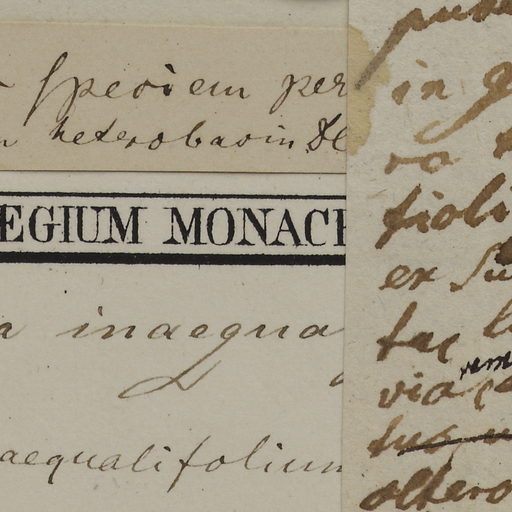 speciem per
heterobasin DC
EGIUM MONAC
a inaequa
aequalifolium
in
ro
fioli
ex Su
tac
via
altero